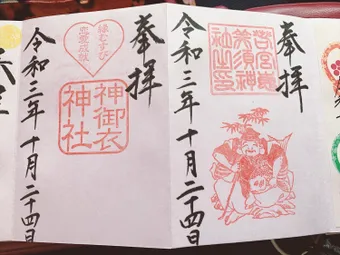 奉拝
恵美須神
社之印
令和三年十月二十四日
奉拝
縁むすび
恋愛成就
神御衣
神社
令和三年十月二十四日